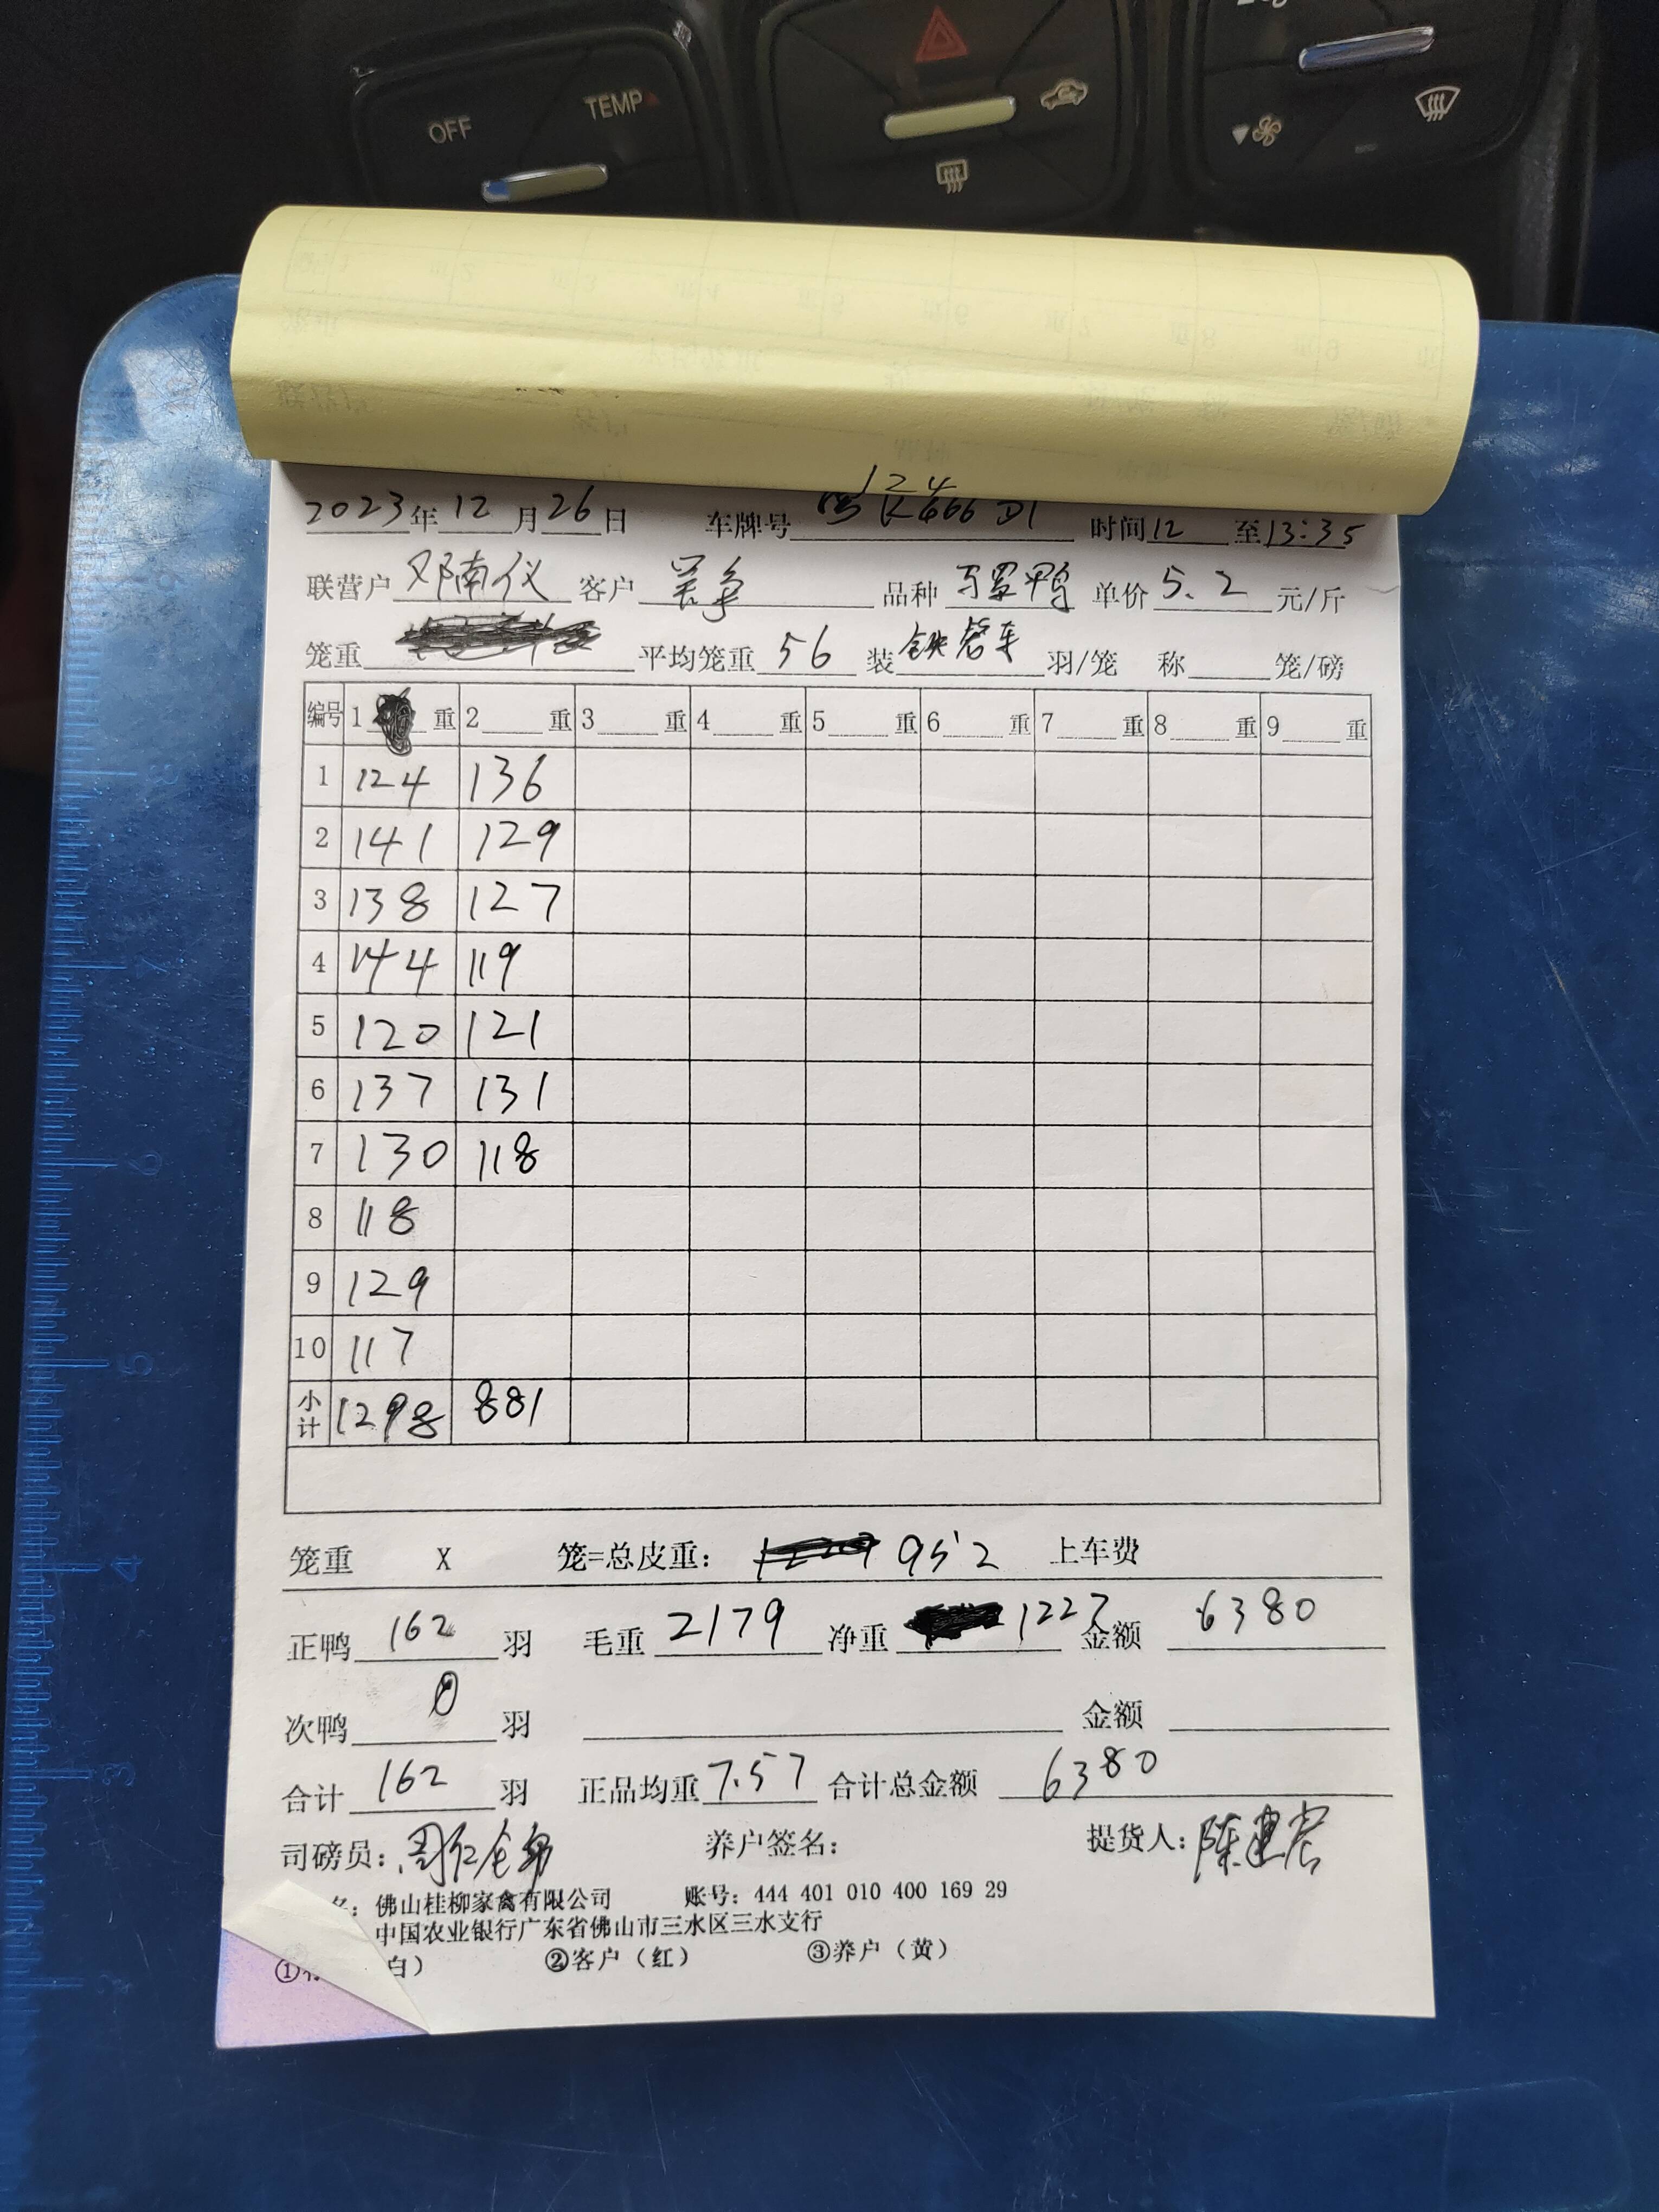 OFF TEMP
124
2023年12月26日 车牌号 K666D1 时间12至13:35
联营户 邓南仪 客户 品种 单价5.2元/斤
笼重 平均笼重56 装铁笼车羽/笼 称 笼/磅
编号 1 重 2 重 3 重 4 重 5 重 6 重 7 重 8 重 9 重
1 124 136
2 141 129
3 138 127
4 144 119
5 120 121
6 137 131
7 130 118
8 118
9 129
10 117
小计 1298 881
笼重 X 笼=总皮重: 952 上车费
正鸭162羽 毛重2179 净重1227 金额6380
次鸭0羽 金额
合计162羽 正品均重7.57 合计总金额6380
司磅员: 养户签名: 提货人:
名: 佛山桂柳家禽有限公司 账号: 444 401 010 400 169 29
中国农业银行广东省佛山市三水区三水支行
① 白) ②客户(红) ③养户(黄)